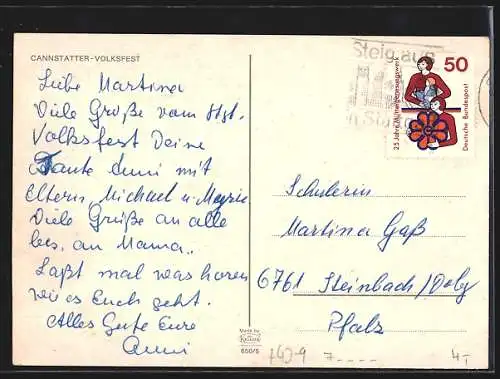 CANNSTATTER-VOLKSFEST
Liebe Martina
Viele Grüße vom Stgt.
Volksfest Deine
Tante Anni mit
Eltern, Michael u.
Viele Grüße an alle
bes. an Mama..
Laßt mal was hören
wie es Euch geht.
Alles Gute Eure
Anni
Steig aus
in
50
25 Jahre Müttergenesungswerk
Deutsche Bundespost
Schülerin
Martina Gaß
6761 Steinbach/Dobg
Pfalz
Made by
Krüger
650/5
4,-